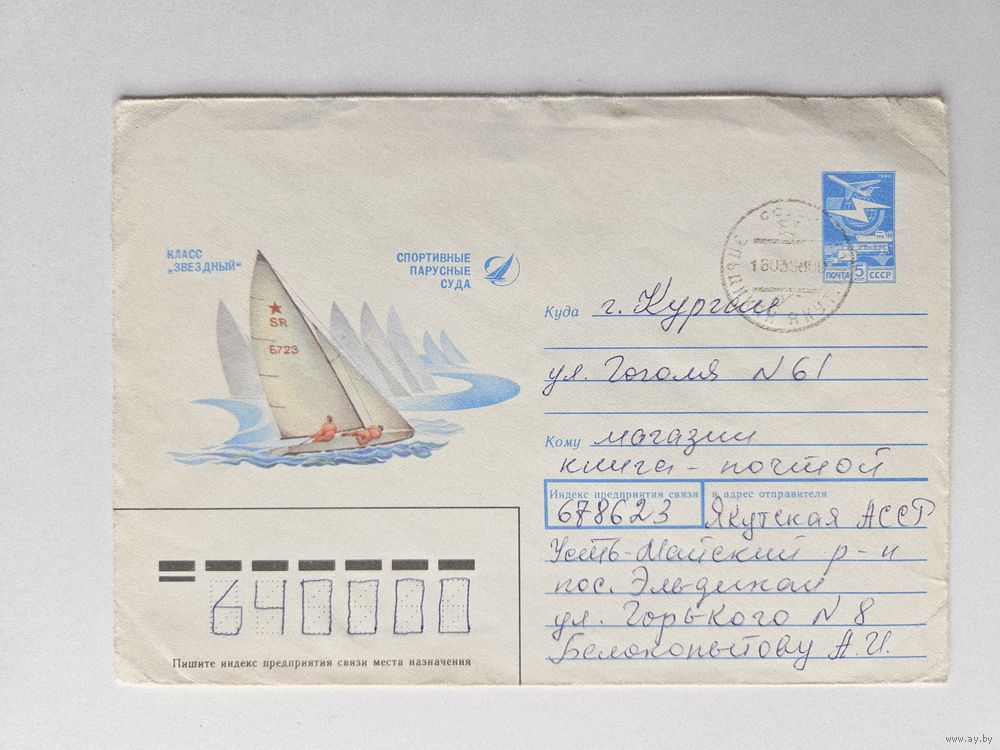 1982
ПОЧТА 5 СССР
КЛАСС
„ЗВЕЗДНЫЙ“
СПОРТИВНЫЕ
ПАРУСНЫЕ
СУДА
SR
6723
Куда г. Курган
ул. Гоголя N 61
Кому магазин
книга - почтой
Индекс предприятия связи и адрес отправителя
678623 Якутская АССР
Усть-Майский р-н
пос. Эльдикан
ул. Горького N 8
Белокопытову А.И.
640000
Пишите индекс предприятия связи места назначения
www.ay.by